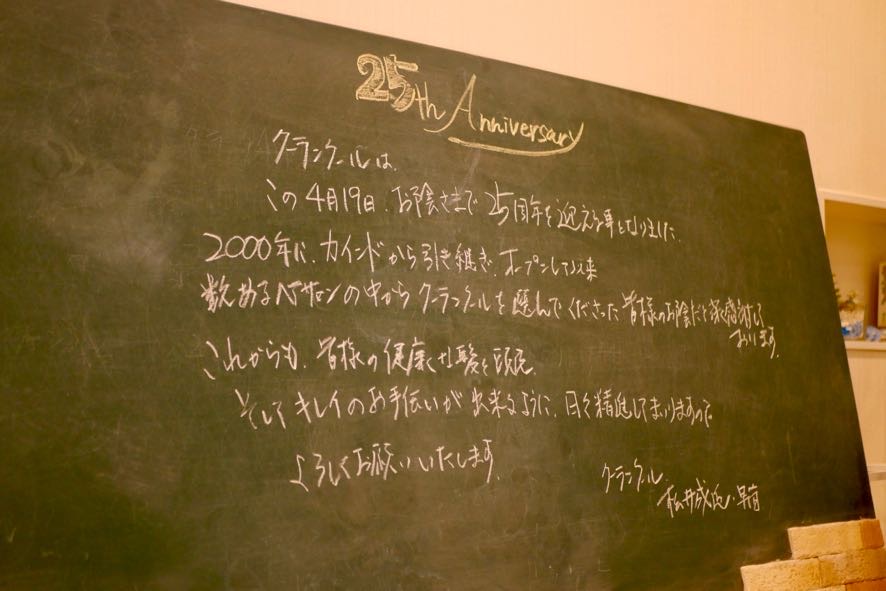 25th Anniversary
クーランクールは、
この4月19日、お陰さまで25周年を迎える事となりました。
2000年に、カインドから引き継ぎ、オープンして以来
数あるヘアサロンの中からクーランクールを選んでくださった皆様のお陰だと深く感謝して
おります。
これからも、皆様の健康な髪と頭皮、
そしてキレイのお手伝いが出来るように、日々精進してまいりますので
よろしくお願いいたします。
クーランクール
松井